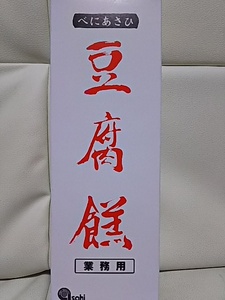 べにあさひ
豆腐餻
業務用
asahi